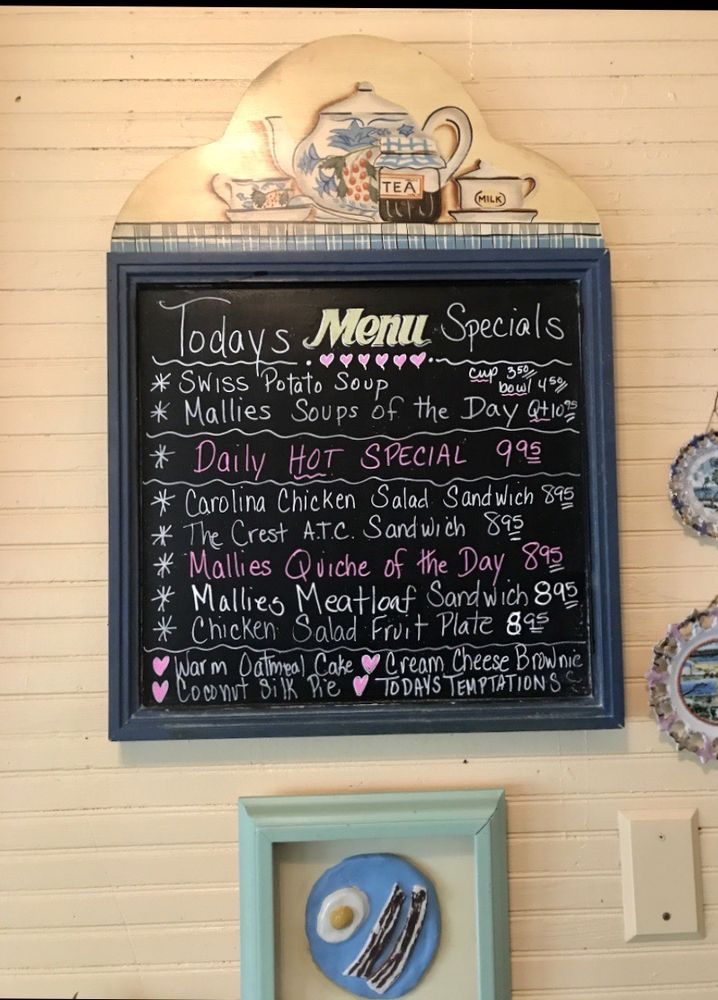 TEA
MILK
Todays Menu Specials
* Swiss Potato Soup cup 3.50/ bowl 4.50/
* Mallies Soups of the Day Qt 10.95
* Daily HOT SPECIAL 9.95
* Carolina Chicken Salad Sandwich 8.95
* The Crest A.T.C. Sandwich 8.95
* Mallies Quiche of the Day 8.95
* Mallies Meatloaf Sandwich 8.95
* Chicken Salad Fruit Plate 8.95
Warm Oatmeal Cake Cream Cheese Brownie
Coconut Silk Pie TODAYS TEMPTATIONS